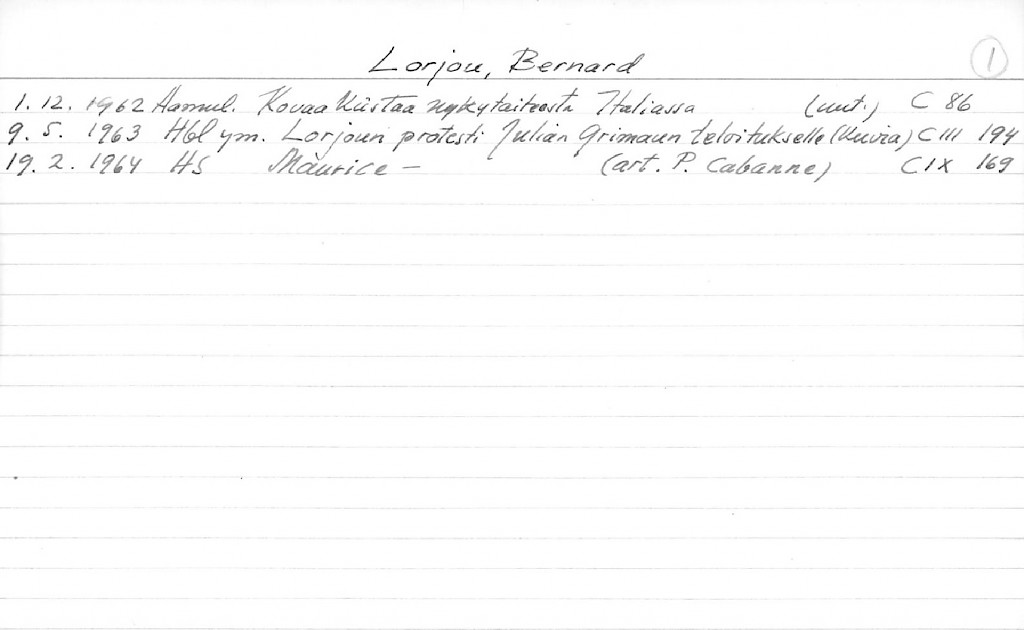 Lorjou, Bernard 1
1. 12. 1962 Aamul. Kovaa kiistaa nykytaiteesta Italiassa (uut.) C 86
9. 5. 1963 Hbl ym. Lorjoun protesti Julian Grimaun teloitukselle (kuvia) C III 194
19. 2. 1964 HS Maurice — (art. P. Cabanne) C IX 169